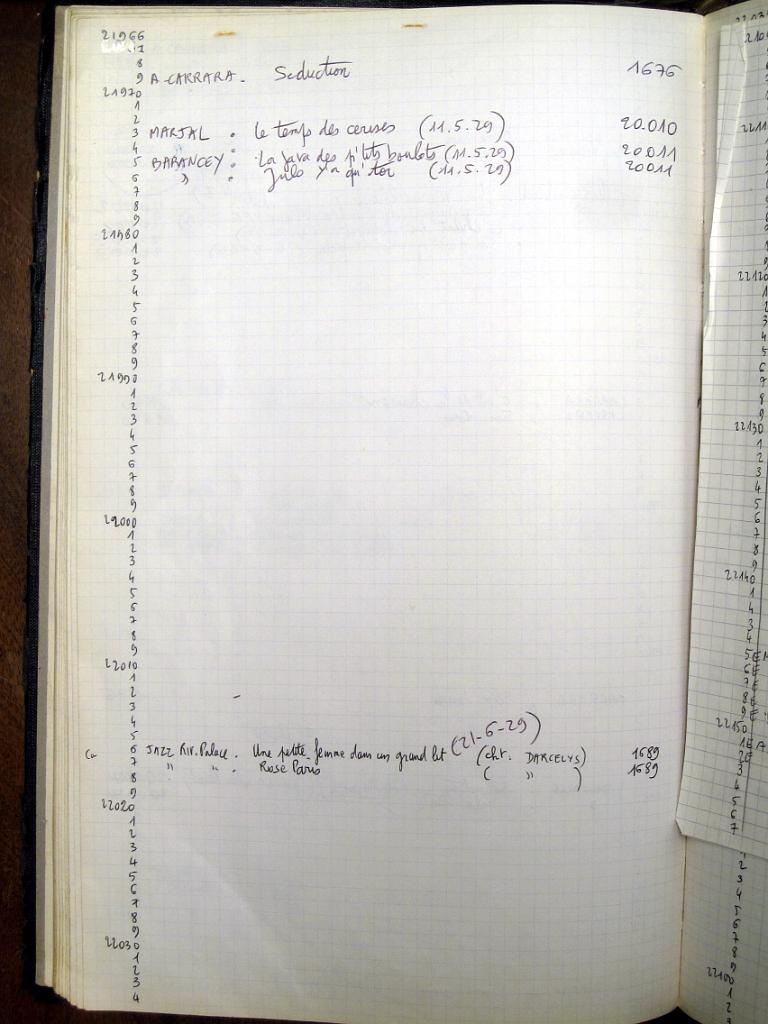 21966
8
9 A. CARRARA. Séduction 1676
21970
1
2
3 MARJAL. Le temps des cerises (11.5.29) 20.010
4
5 BARANCEY. La java des p'tits boulots (11.5.29) 20011
6 " . Julo y'a qu'toi (11.5.29) 20011
7
8
9
21980
1
2
3
4
5
6
7
8
9
21990
1
2
3
4
5
6
7
8
9
22000
1
2
3
4
5
6
7
8
9
22010
1
2
3
4
5
6 JAZZ Riv. Palace. Une petite femme dans un grand lit (21-6-29) (cht. DARCELYS) 1689
7 " " . Rose Paris ( " ) 1689
8
9
22020
1
2
3
4
5
6
7
8
9
22030
1
2
3
4
22120
22130
1
2
3
4
5
6
7
8
9
22140
1
4
3
4
22150
3
4
5
6
7
2
3
4
5
6
7
8
9
22100
1
2